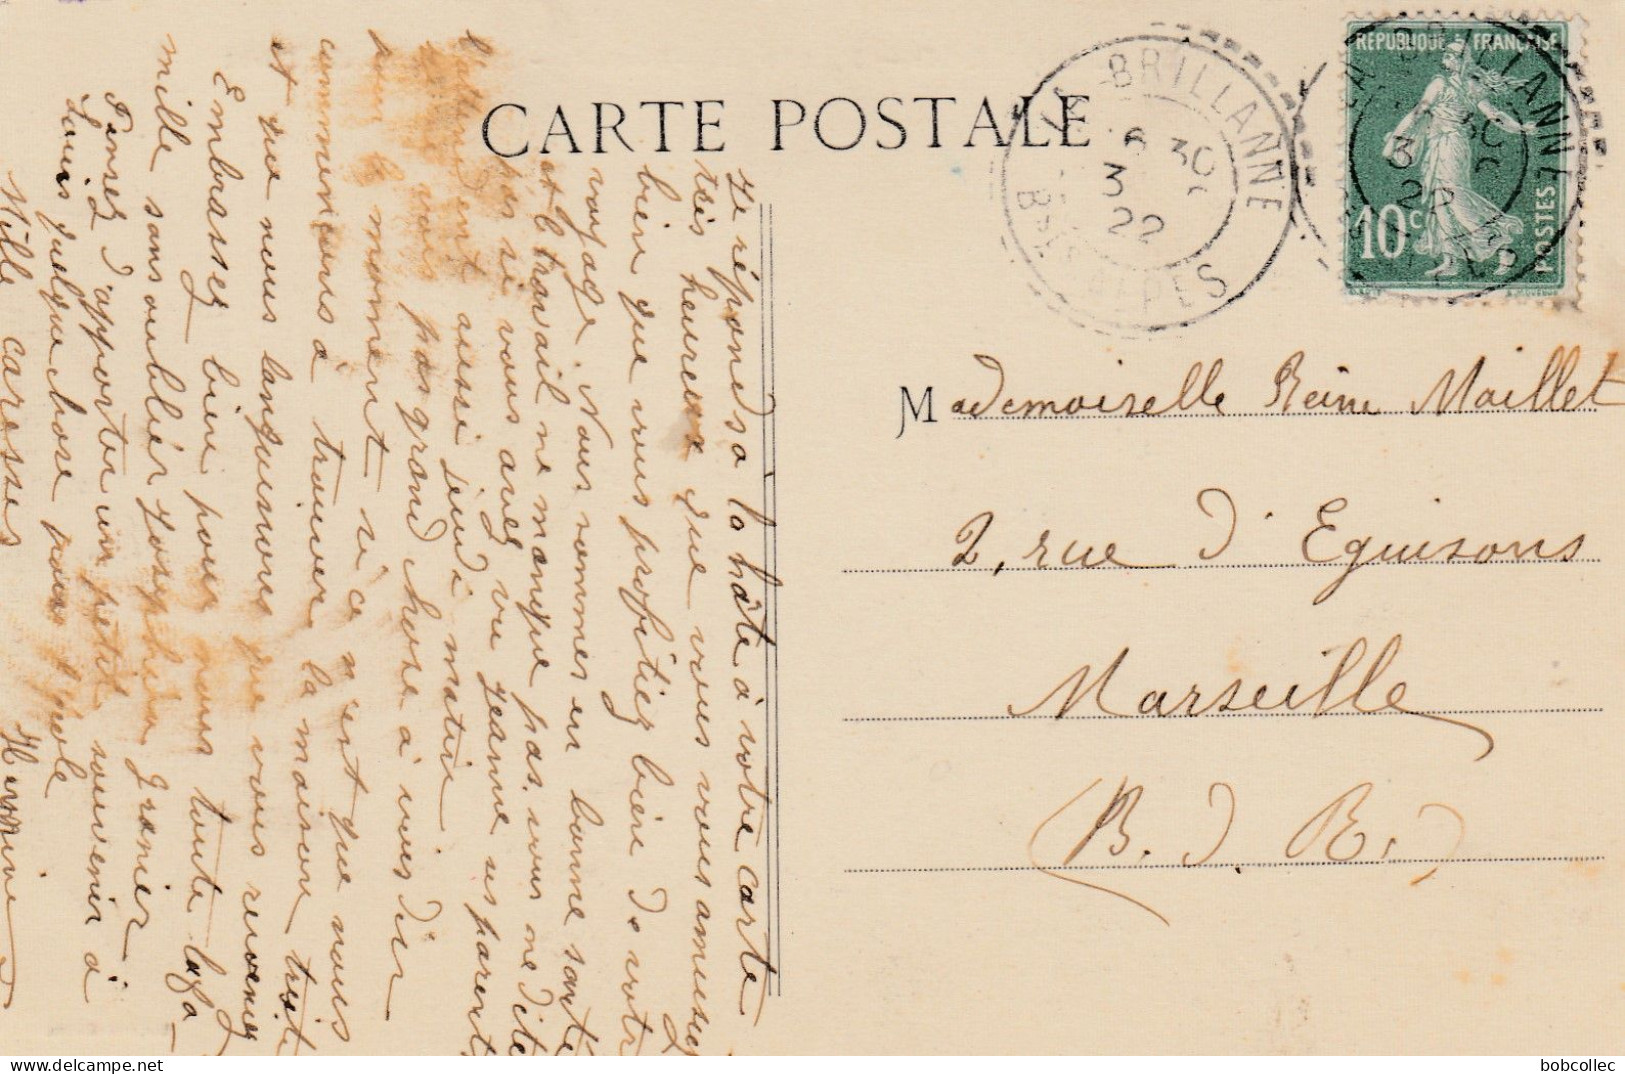 CARTE POSTALE
LA BRILLANNE
6 30
3
22
BSES ALPES
REPUBLIQUE FRANCAISE
10c
POSTES
LA BRILLANNE
30
3
22
Mademoiselle Reine Maillet
2, rue d'Eguisons
Marseille
(B. d. R.)
Je réponds à la hâte à votre carte
très heureux que vous vous amusez
bien que vous profitiez bien de votr
voyage. Nous sommes en bonne sante
et le travail ne manque pas. vous ne dite
pas si vous avez vu Jeanne ses parent
aussi jeudi matin
vous pas grand chose à vous dir
pour le moment si ce n'est que nous
commencons à trouver la maison trist
et que nous languissons que vous revenez
Embrassez bien pour nous toute la fa-
mille sans oublier Josephin Granier
Pensez d'apporter un petit souvenir à
Louis quelque chose pour l'école
Mille caresses